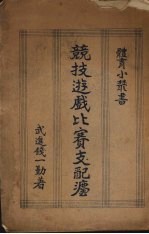 體育小叢書
競技遊戲比賽支配法
武進錢一勤著